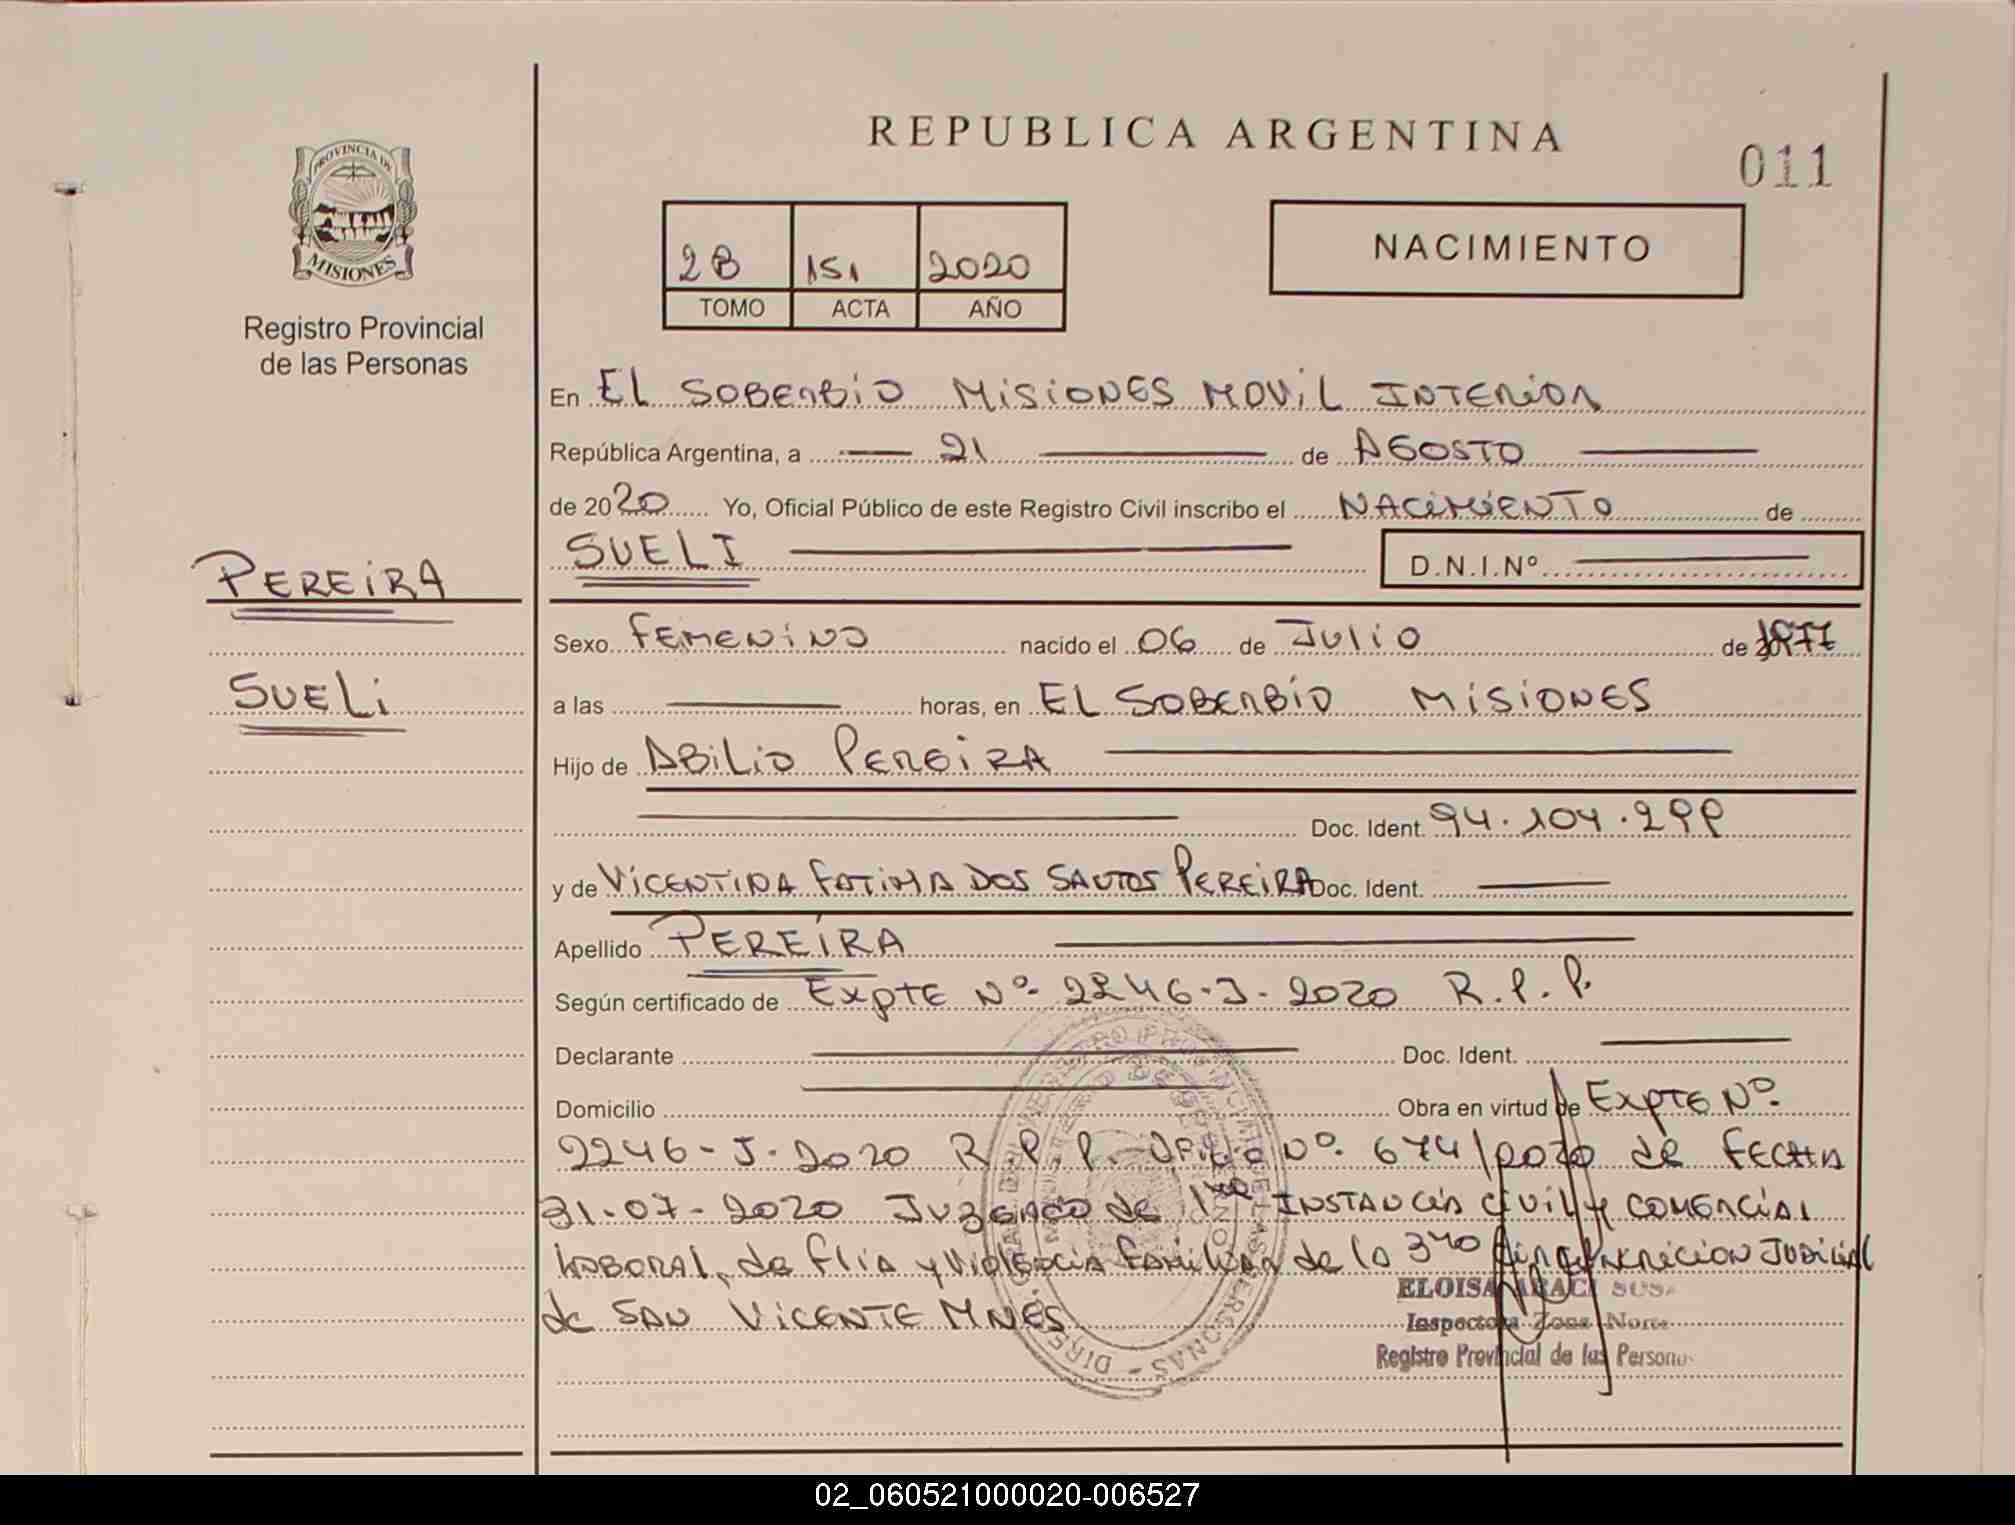 REPUBLICA ARGENTINA
011
PROVINCIA DE
MISIONES
Registro Provincial
de las Personas
2B 151 2020
TOMO ACTA AÑO
NACIMIENTO
En EL SOBERBIO MISIONES MOVIL INTERIOR
República Argentina, a 21 de AGOSTO
de 2020 Yo, Oficial Público de este Registro Civil inscribo el NACIMIENTO de
SUELI D.N.I.Nº
PEREIRA
SUELI
Sexo FEMENINO nacido el 06 de JULIO de 1977
a las horas, en EL SOBERBIO MISIONES
Hijo de ABILIO PEREIRA
Doc. Ident. 94.104.299
y de VICENTINA FATIMA DOS SANTOS PEREIRA Doc. Ident.
Apellido PEREIRA
Según certificado de EXPTE Nº 2246-J-2020 R.P.P.
Declarante Doc. Ident.
Domicilio Obra en virtud de EXPTE Nº
2246-J-2020 R.P.P. OFICIO Nº 674/2020 de FECHA
31-07-2020 JUZGADO de 1ra INSTANCIA CIVIL y COMERCIAL
LABORAL, de FLIA y VIOLENCIA FAMILIAR de la 3ra CIRCUNSCRICION JUDICIAL
de SAN VICENTE MNES
ELOISA ARACI SUSA
Inspectora Zona Norte
Registro Provincial de las Personas
02_060521000020-006527